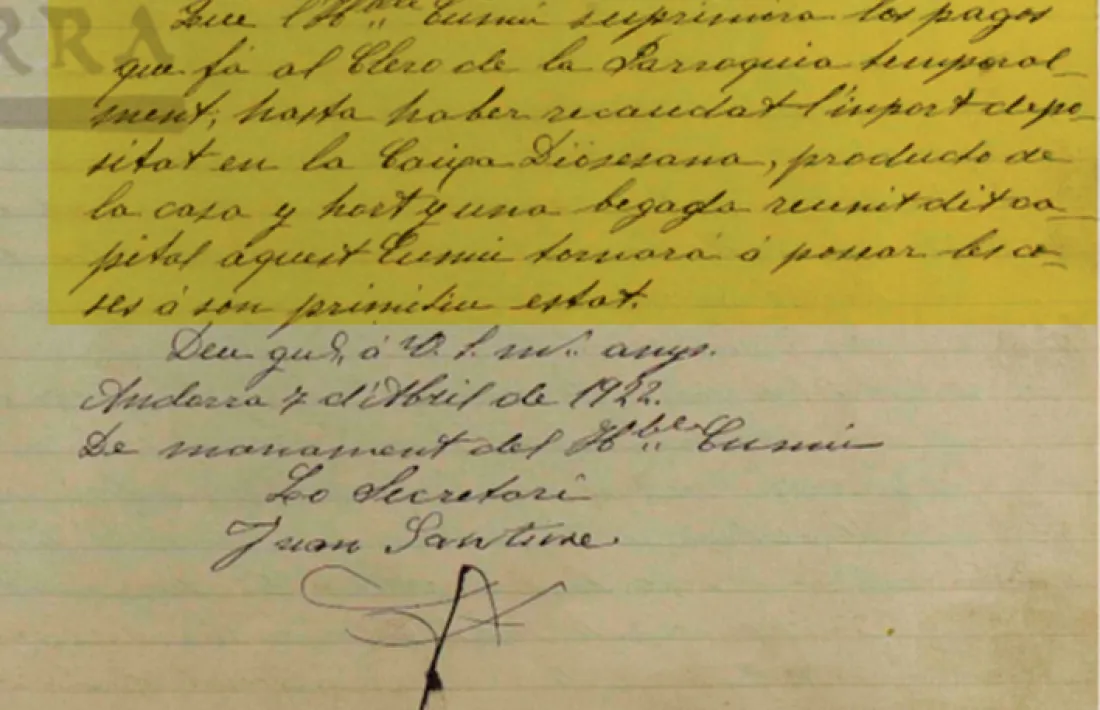 RRA
Que l'Hble Cumú suprimira los pagos
que fá al Clero de la Parroquia temporal-
ment, hasta haber recaudat l'inport depo-
sitat en la Caixa Diosesana, producto de
la casa y hort y una begada reunit dit ca-
pital aquest Cumú tornará á posar les co-
ses á son primitiu estat.
Deu gud. á V. S. ms. anys.
Andorra 7 d'Abril de 1922.
De manament del Hble Cumú
Lo Secretari
Juan